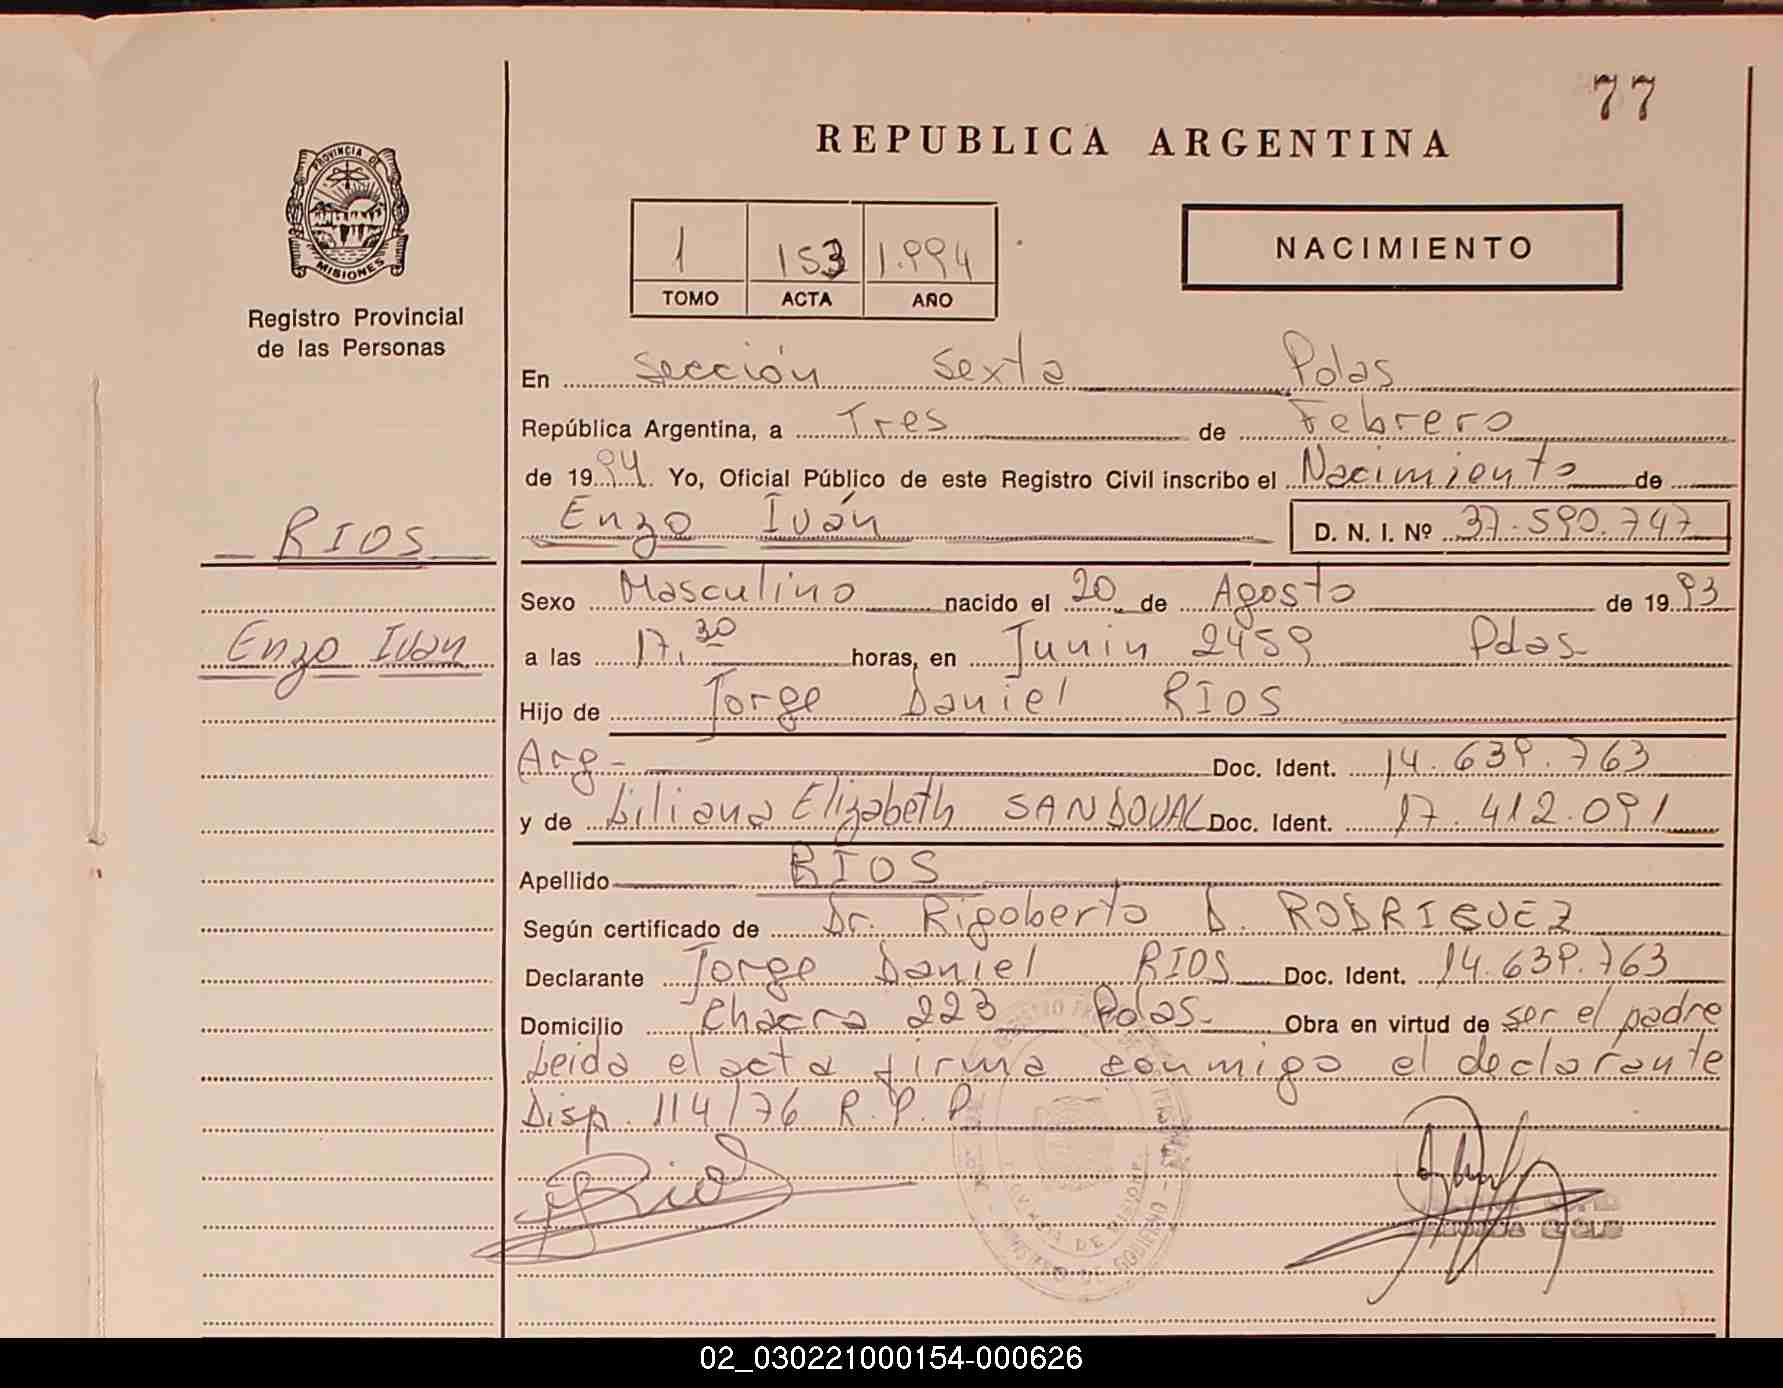 77
REPUBLICA ARGENTINA
PROVINCIA DE
MISIONES
Registro Provincial
de las Personas
1 153 1.994
TOMO ACTA AÑO
NACIMIENTO
En Sección Sexta Pdas
República Argentina, a Tres de Febrero
de 1994 Yo, Oficial Público de este Registro Civil inscribo el Nacimiento de
RIOS
Enzo Iván D. N. I. Nº 37.590.747
Sexo Masculino nacido el 20 de Agosto de 1993
Enzo Ivan
a las 17,30 horas, en Junin 2459 Pdas
Hijo de Jorge Daniel RIOS
Arg- Doc. Ident. 14.639.763
y de Liliana Elizabeth SANDOVAL Doc. Ident. 17.412.091
Apellido RIOS
Según certificado de Dr. Rigoberto D. RODRIGUEZ
Declarante Jorge Daniel RIOS Doc. Ident. 14.639.763
Domicilio Chacra 223 Pdas- Obra en virtud de ser el padre
Leida el acta firma conmigo el declarante
Disp. 114/76 R.P.P
Rios
02_030221000154-000626